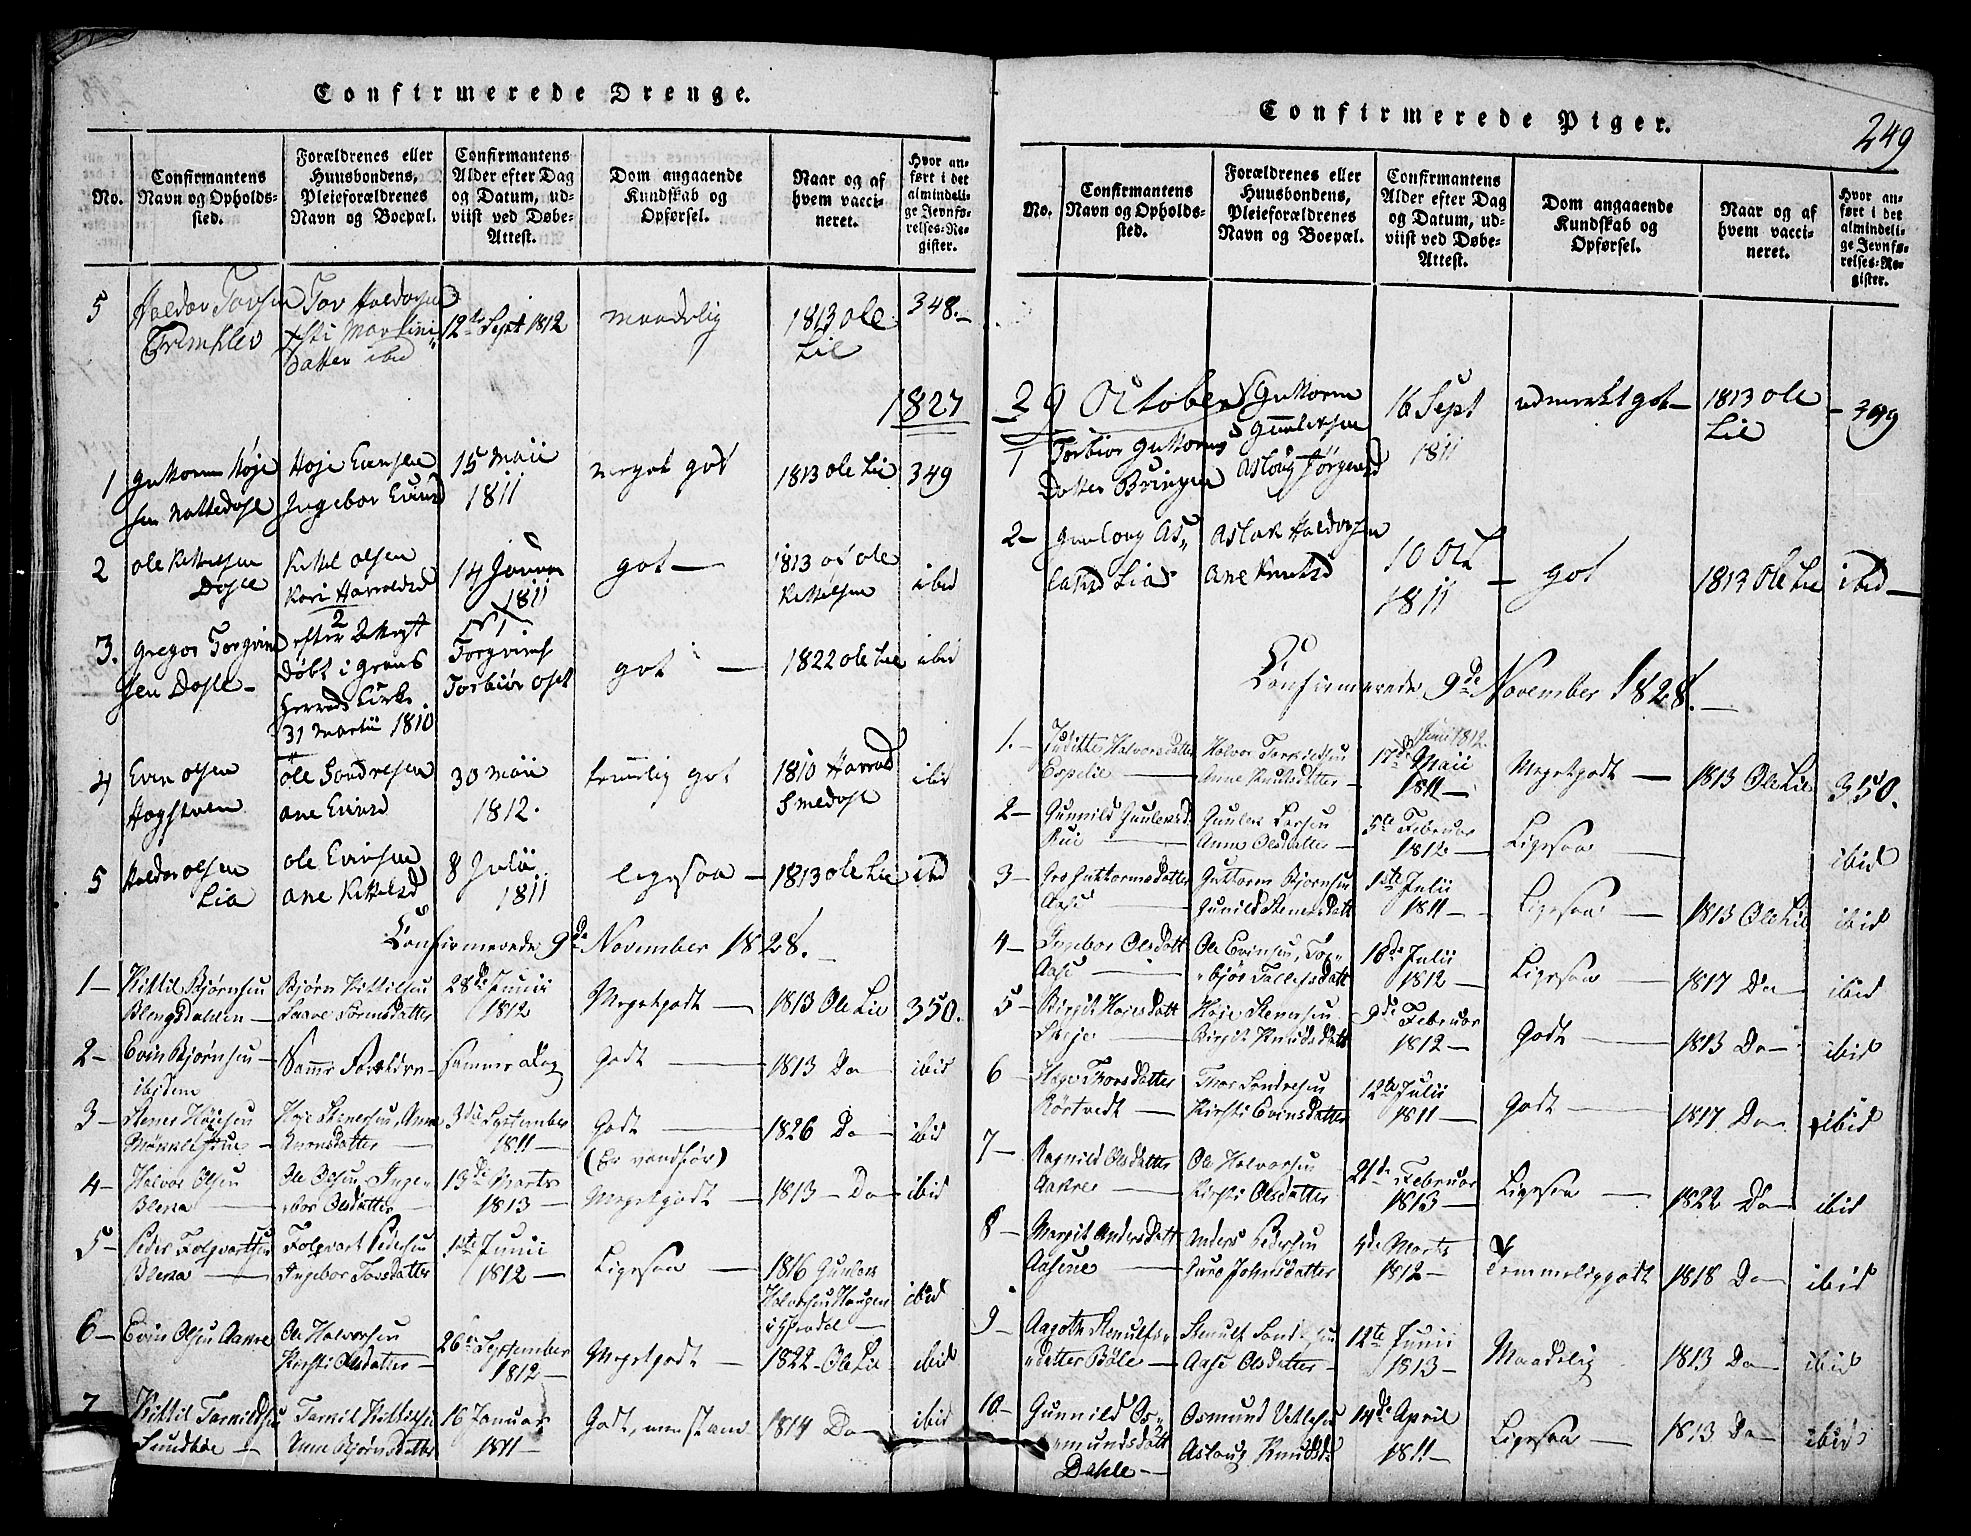 Confirmerede Drenge.
No.
Confirmantens
Navn og Opholds-
sted.
Forældrenes eller
Huusbondens,
Pleieforældrenes
Navn og Boepæl.
Confirmantens
Alder efter Dag
og Datum, ud-
viist ved Døbe-
Attest.
Dom angaaende
Kundskab og
Opførsel.
Naar og af
hvem vacci-
neret.
Hvor an-
ført i det
almindeli-
ge Jevnfø-
relses-Re-
gister.
5
Haldor Torsen
Tor Haldorsen
12te Sept 1812
maadelig
1813 ole
Lie
348.
ibid
1827
1
Høje Evensen
15 Maii
1811
meget got
1813 ole Lie
349
2
ole Kittelsen
Dosle
Kittel olsen
Kari Harroldsd
14
1811
got
1813 af ole
Kittelsen
ibid
3.
Gregor Torgrim
sen Dosle
døbt i Grans
Herreds Kirke
31 Martii 1810
got
1822 ole Lie
ibid
4
Even olsen
ole Sondresen
ane Evensd
30 Maii
1812.
temmelig got
1810 Harrold
Smedosle
ibid
5
Haldor olsen
Lia
ole Evensen
ane Kittelsd
8 Julii
1811
ligesaa
1813 ole Lie
ibid
Confirmerede 9de November 1828.
1
Kittil Bjørnsen
Blengsdalen
Bjørn Kittilsen
28de Junii
1812
Megetgodt
1813 Ole Lie
350.
2
Evin Bjørnsen
ibidem
Samme Forældre
samme Dag
Godt
1813 Do
ibid
3
Stener Høiesen
Høje Stenersen, Anne
3die September
1811
Godt
(Er vandfør)
1826 Do
ibid
4
Halvor Olsen
Blena
Ole Olsen, Inge-
bor Olsdatter
13de Marts
1813
Megetgodt
1813 Do
ibid
5
Peder Folqvartsen
Blena
Folqvart Pedersen
Ingebor Torsdatter
1ste Junii
1812
Ligesaa
1816 Gunlek
Halvorsen Haugen
ibid
6
Evin Olsen Aakre
Ole Halvorsen
Kirsti Olsdatter
26de September
1812
Megetgodt
1822 Ole Lie
ibid
7
Kittil Tarkildsen
Sundbøe
Tarkil Kittilsen
Anne Bjørnsdatter
16 Januar
1811
Godt,
1814 Do
ibid
Confirmerede Piger.
249
No.
Confirmantens
Navn og Opholds-
sted.
Forældrenes eller
Huusbondens,
Pleieforældrenes
Navn og Boepæl.
Confirmantens
Alder efter Dag
og Datum, ud-
viist ved Døbe-
Attest.
Dom angaaende
Kundskab og
Opførsel.
Naar og af
hvem vacci-
neret.
Hvor an-
ført i det
almindeli-
ge Jevnfø-
relses-Re-
gister.
29 October
1
Torbior Guttorms
Datter Bringen
Guttorm
Gunleksen
Asloug Jørgensd
16 Sept
1811
udmerkt got
1813 ole
Lie
349
2
Gunloug As-
laksd Lia
Aslak Haldorsen
Ane Knutsd
10 Oct
1811
got
1813 Ole Lie
ibid
Confirmerede 9de November 1828.
1.
Juditte Halvorsdatter
Espelie
Halvor Tarkildsen
Anne Knudsdatter
Junii 1812.
17de Maii
1811
Megetgodt
1813 Ole Lie
350.
2
Gunnild Gunleksd.
Rue
Gunlek Larsen
Anne Olsdatter
5te Februar
1812
Ligesaa
ibid
3
Gro Guttormsdatter
Aase
Guttorm Bjørnsen
Gunild Stenersdatt
1ste Julii
1811
Ligesaa
1813 Ole Lie
ibid
4
Ingebor Olsdatt
Aase
Ole Evinsen, Tor-
bjør Tallefsdatt
16de Julii
1812
Ligesaa
1817 Do
ibid
5
Birgit Høiesdatt
Skeje
Høie Stenersen
Birgit Knudsdatt
9de Februar
1812
Godt
1813 Do
ibid
6
Aager Thorsdatter
Rørtvedt
Thor Sondresen
Kirsti Evinsdatter
12te Julii
1811
Godt
1817 Do
ibid
7
Ragnild Olsdatter
Aakre
Ole Halvorsen
Kirsti Olsdatter
21de Februar
1813
Ligesaa
1822 Do
ibid
8
Margit Andersdatt
Aasene
Anders Pedersen
Guro Johnsdatter
4de Marts
1812
Temmeliggodt
1818 Do
ibid
9
Aagoth Stenulfs-
datter Bøle
Stenulf
Aase Olsdatter
12te Junii
1813
Maadelig
1813 Do
ibid
10
Gunnild Os-
mundsdatt
Dahle
Osmund Vetlesen
Asloug Knudsd.
14de April
1811
Ligesaa
1813 Do
ibid